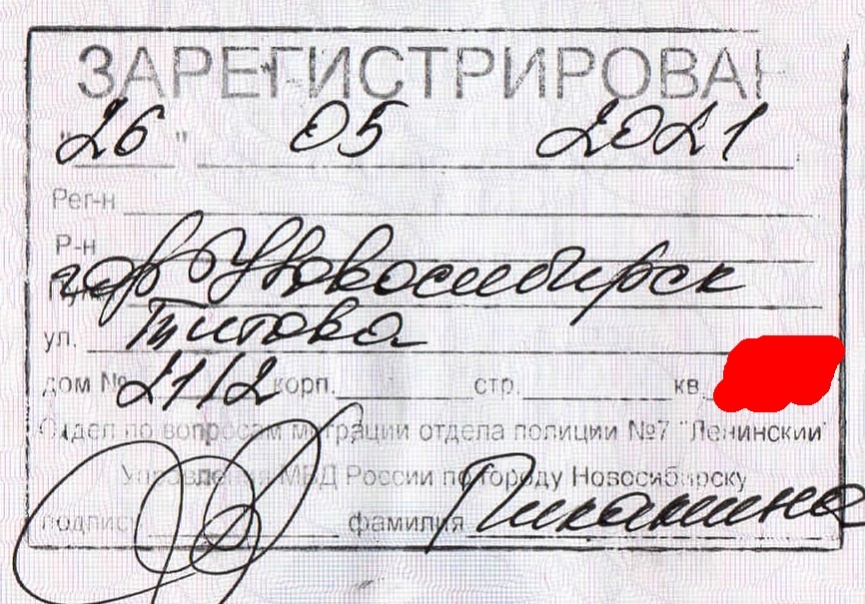 ЗАРЕГИСТРИРОВАН
"26" 05 2021
Рег-н
Р-н
гор Новосибирск
ул. Титова
дом № 21/2 корп. стр. кв.
Отдел по вопросам миграции отдела полиции №7 "Ленинский"
Управления МВД России по городу Новосибирску
подпись фамилия